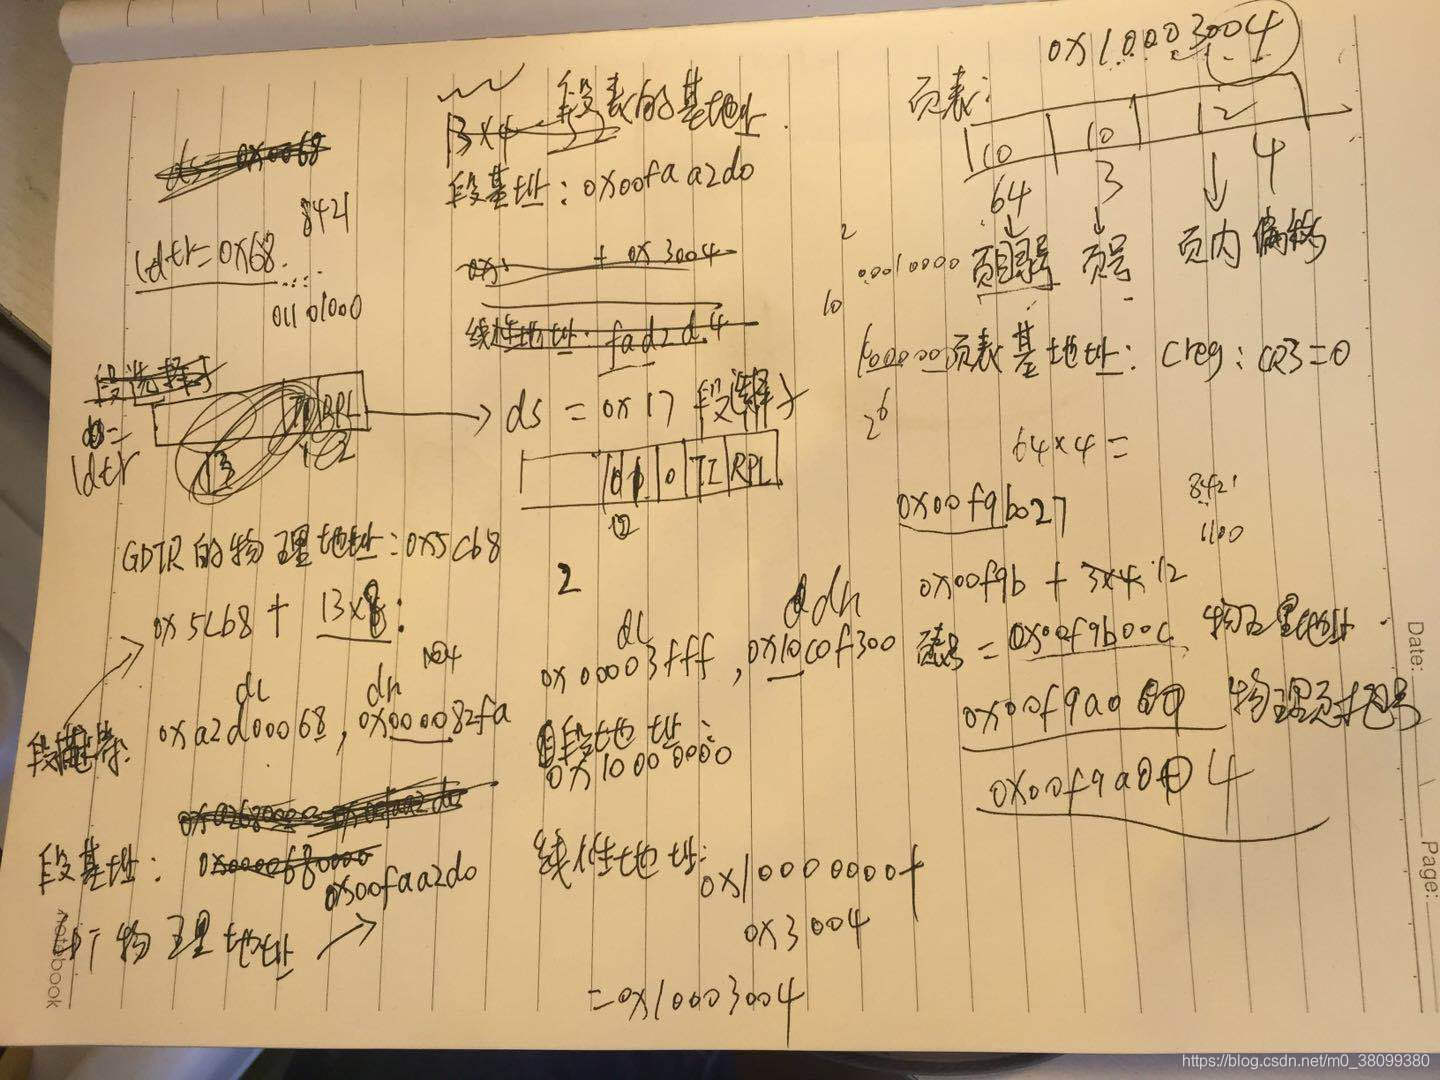 ldtr=0x68
8421
01101000
ldtr
RPL
GDTR的物理地址:0x5cb8
0x5cb8 + 13x8:
dl
dh
段描述符: 0xa2d00068, 0x000082fa
段基址:
0x00faa2d0
物理地址
notebook
13x4 52
段表的基地址
段基址: 0x00faa2d0
+ 0x3004
线性地址: fad2d4
ds = 0x17 段选择子
TI
RPL
2
dl
dh
0x00003fff, 0x10c0f300
段地址:
0x10000000
线性地址:
0x10000000+
0x3004
=0x10003004
0x10003004
页表:
10
10
12
64
3
4
00010000
页目录号
页号
页内偏移
页表基地址: creg: CR3=0
64x4=
0x00f9b027
8421
1100
0x00f9b + 3x4 12
= 0x00f9b00c 物理地址
物理页框号
0x00f9a004
Date:
Page:
https://blog.csdn.net/m0_38099380